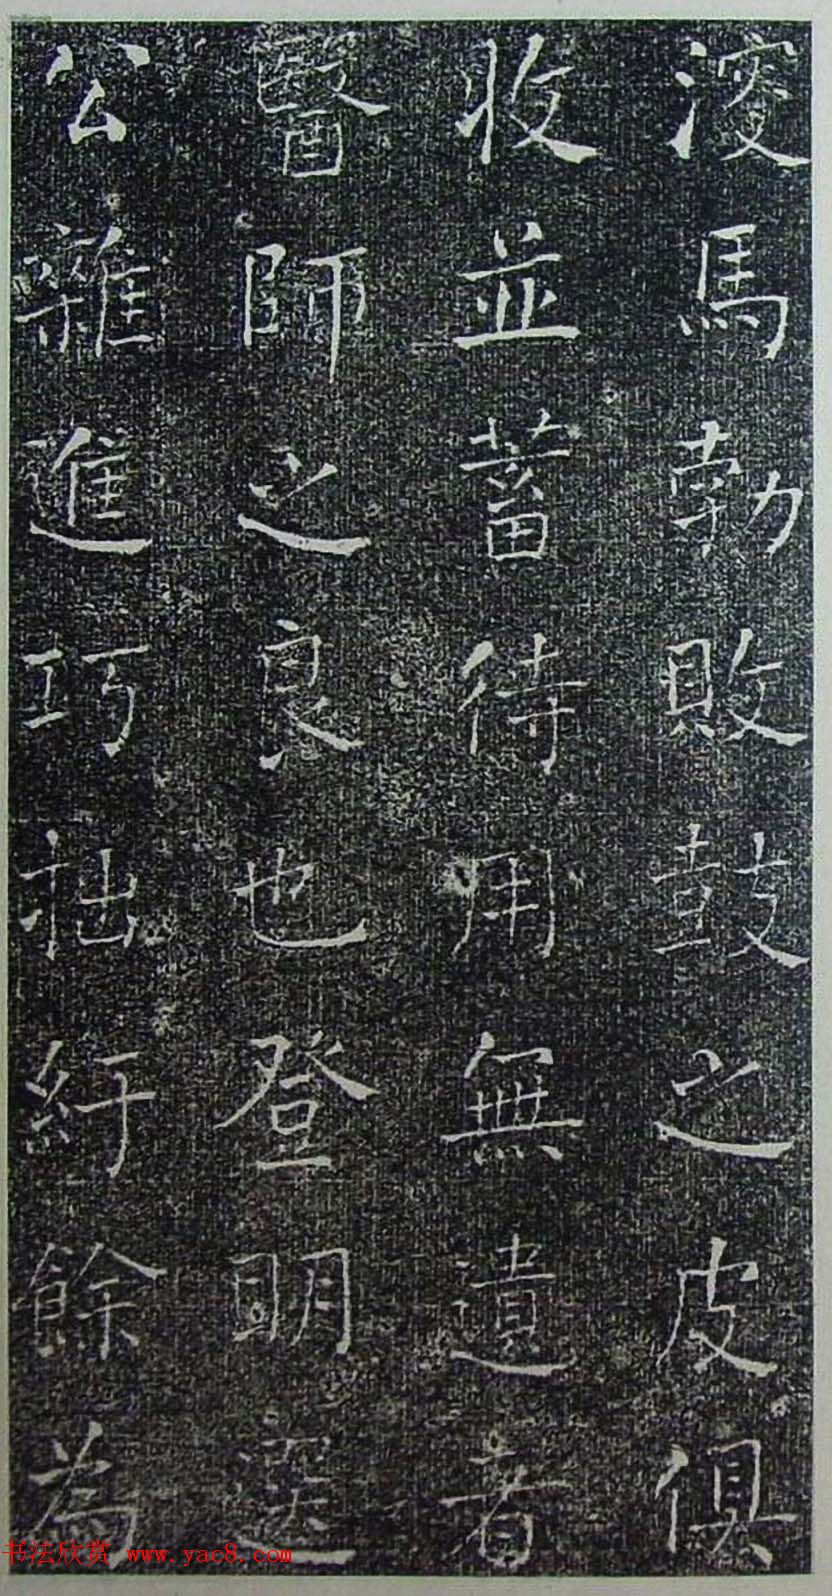 溲馬勃敗鼓之皮俱
收並蓄待用無遺者
醫師之良也登明選
公雜進巧拙紆餘為
书法欣赏 www.yac8.com